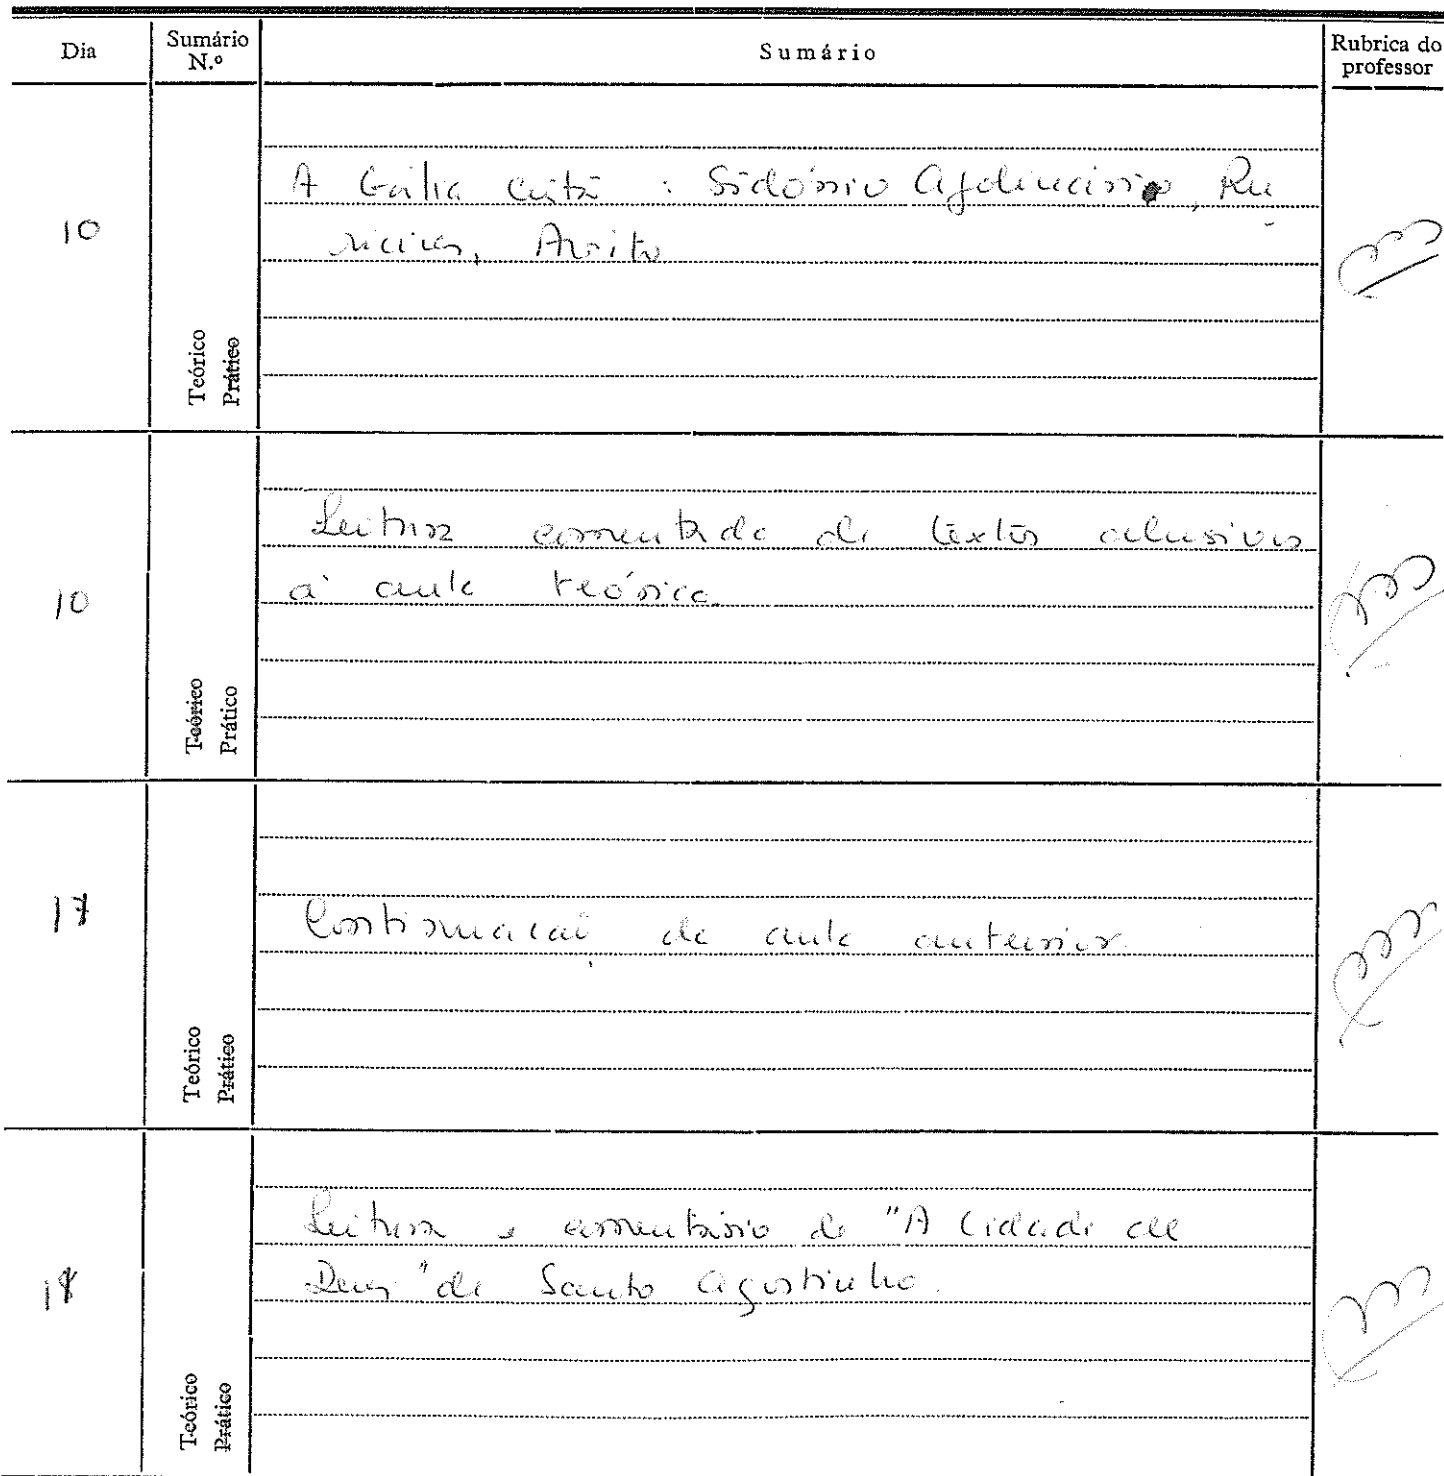 Dia
Sumário N.º
Sumário
Rubrica do professor
10
A Gália cristã : Sidónio Apolinário, Ru
rícius, Avito
Teórico
Prático
10
Leitura comentada de textos alusivos
à aula teórica.
Teórico
Prático
17
Continuação da aula anterior.
Teórico
Prático
Leitura e comentário de "A Cidade de
Deus" de Santo Agostinho.
Teórico
Prático